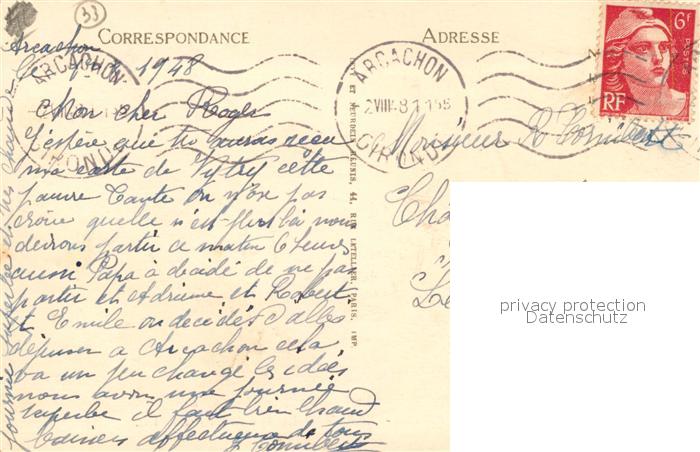 33
CORRESPONDANCE
ADRESSE
6F
POSTES
RF
ARCACHON
GIRONDE
ARCACHON
2 VIII 48
GIRONDE
Arcachon
le 1948
Mon cher Roger
J'espère que tu auras reçu
ma carte de Vytry cette
pauvre tante on n'ose pas
croire quelle n'est plus là nous
devions partir ce matin 6 heures
aussi Papa à décidé de ne pas
partir et Adrienne et Robert
et Emile on decidés d'aller
déjeuner a Arcachon cela
va un peu changer les idées
nous avons une journée
superbe il fait très chaud
Baisers affectueux de tous
journée superbe et très chaude
Monsieur R
44, RUE LETELLIER, PARIS, IMP.
privacy protection
Datenschutz